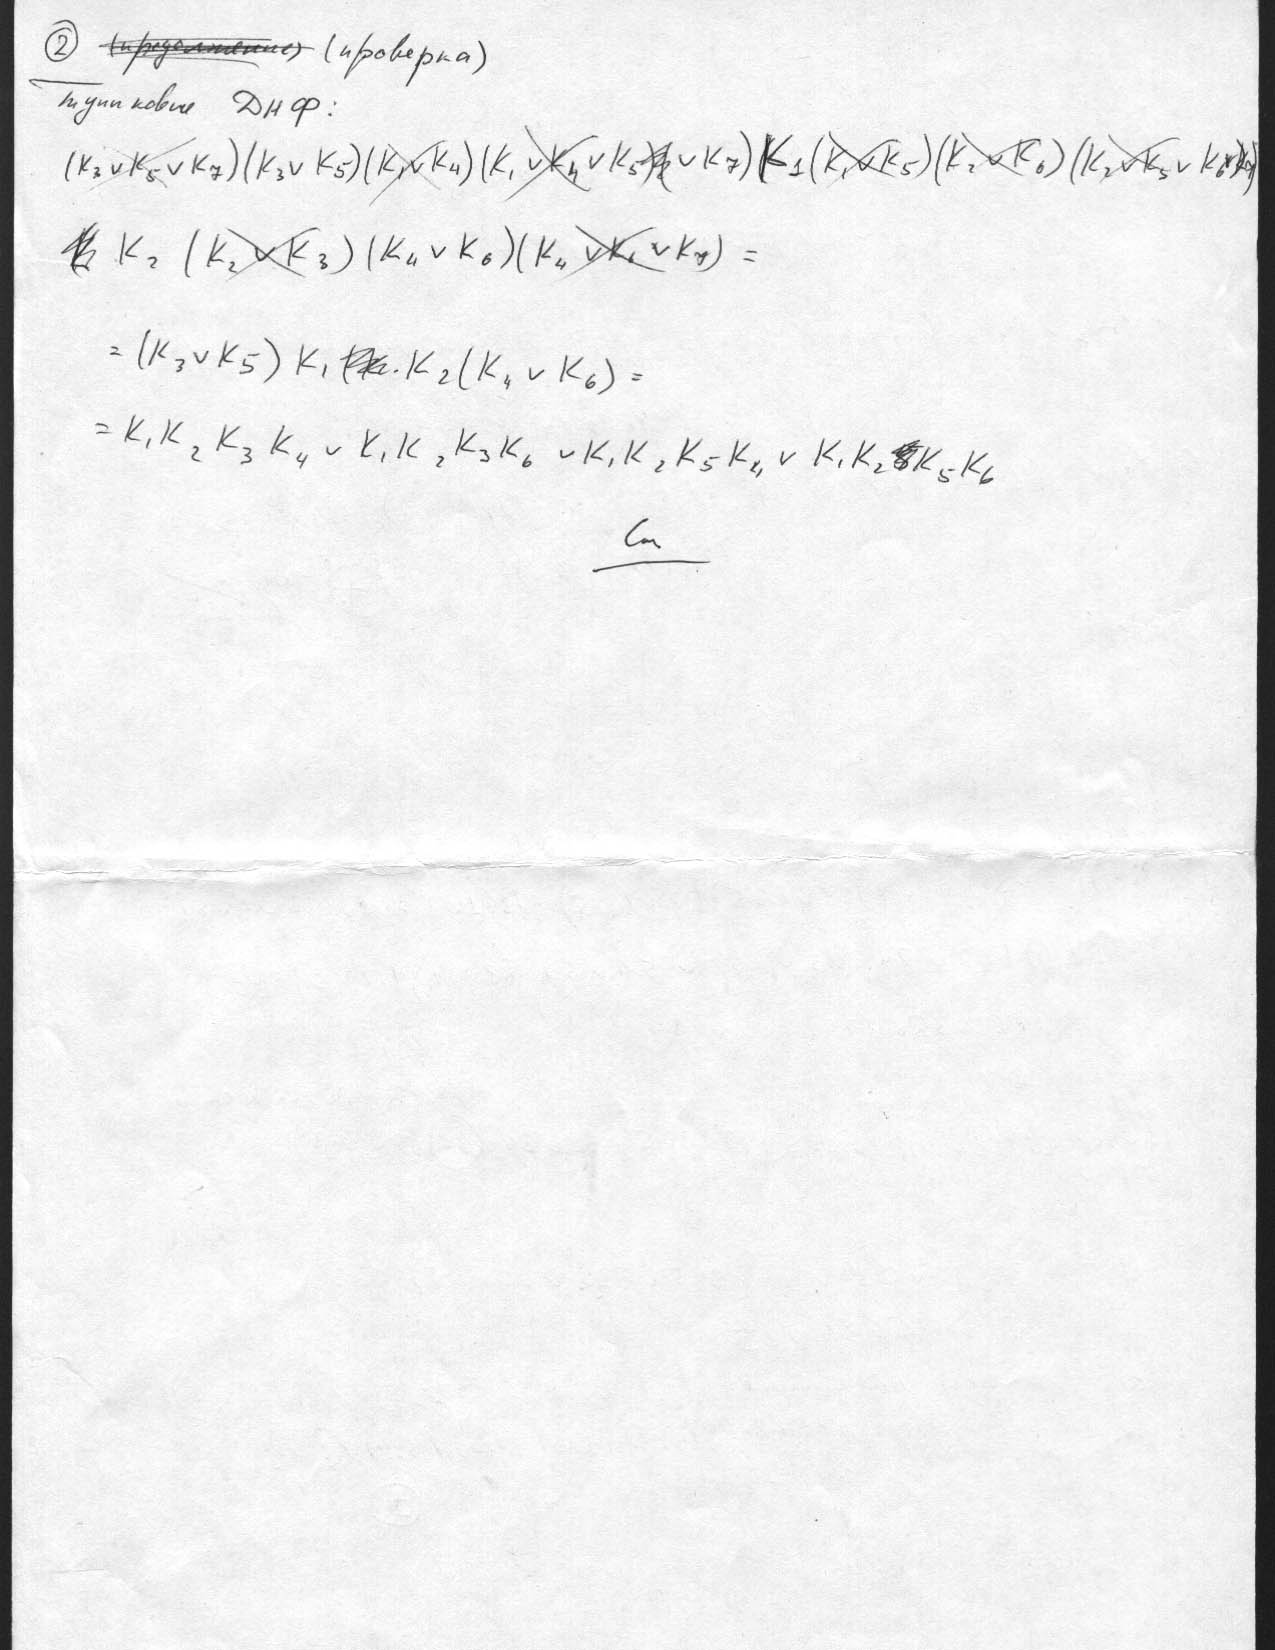 ② (продолжение) (проверка)
тупиковые ДНФ:
(K₃ ∨ K₅ ∨ K₇)(K₃ ∨ K₅)(K₁ ∨ K₄)(K₁ ∨ K₄ ∨ K₅ ∨ K₇) K₁ (K₁ ∨ K₅)(K₂ ∨ K₆)(K₂ ∨ K₅ ∨ K₆ ∨ K₇)
K₂ (K₂ ∨ K₃)(K₄ ∨ K₆)(K₄ ∨ K₆ ∨ K₇) =
= (K₃ ∨ K₅) K₁ · K₂ (K₄ ∨ K₆) =
= K₁K₂K₃K₄ ∨ K₁K₂K₃K₆ ∨ K₁K₂K₅K₄ ∨ K₁K₂K₅K₆